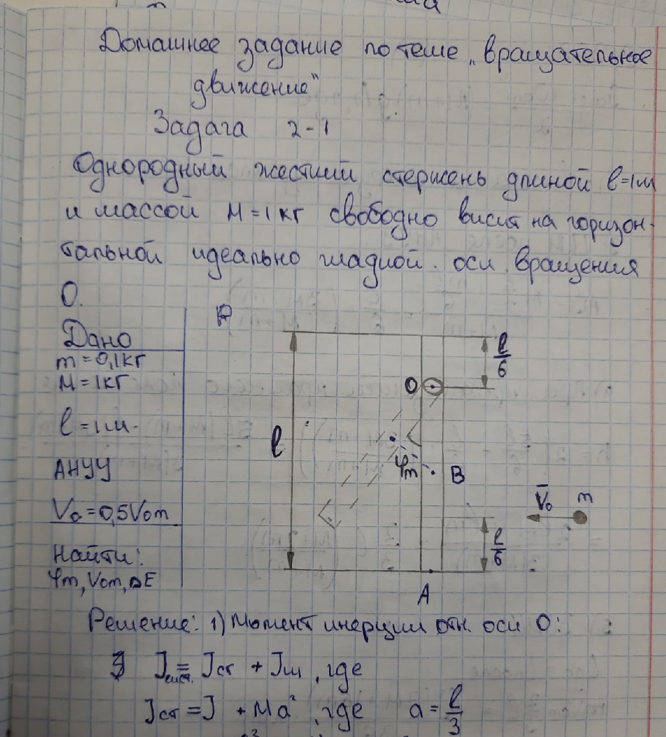 Домашнее задание по теме „вращательное
движение"
Задача 2-1
Однородный жесткий стержень длиной l=1м
и массой M=1кг свободно висит на горизон-
тальной идеально гладкой оси вращения
O.
Дано
m=0,1кг
M=1кг
l=1м
АНУУ
V₀=0,5V₀m
Найти:
φm, V₀m, ΔE
l
l/6
O
φm
B
V̄₀ m
l/6
A
Решение: 1) Момент инерции отн. оси O:
Jсист. = Jст + Jш, где
Jст = J + Ma², где a = l/3